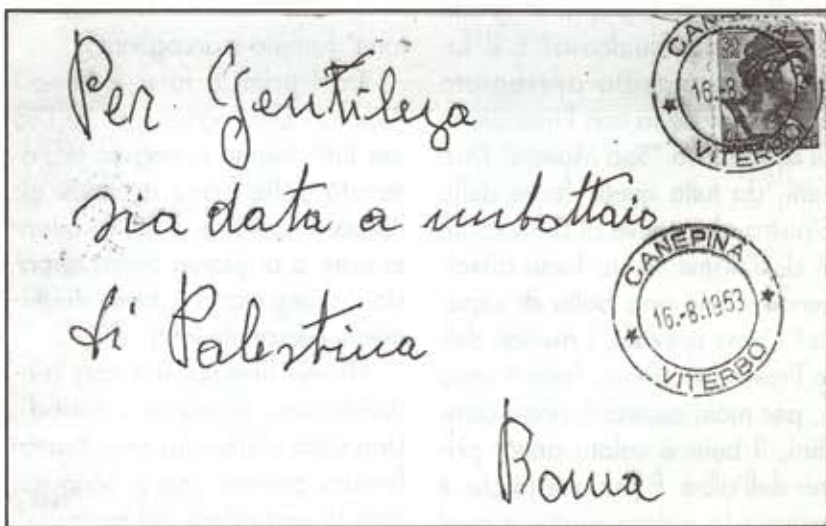 Per Gentileza
sia data a un bottaio
di Palestrina
Roma
CANEPINA
16.-8.
VITERBO
CANEPINA
16.-8.1963
VITERBO